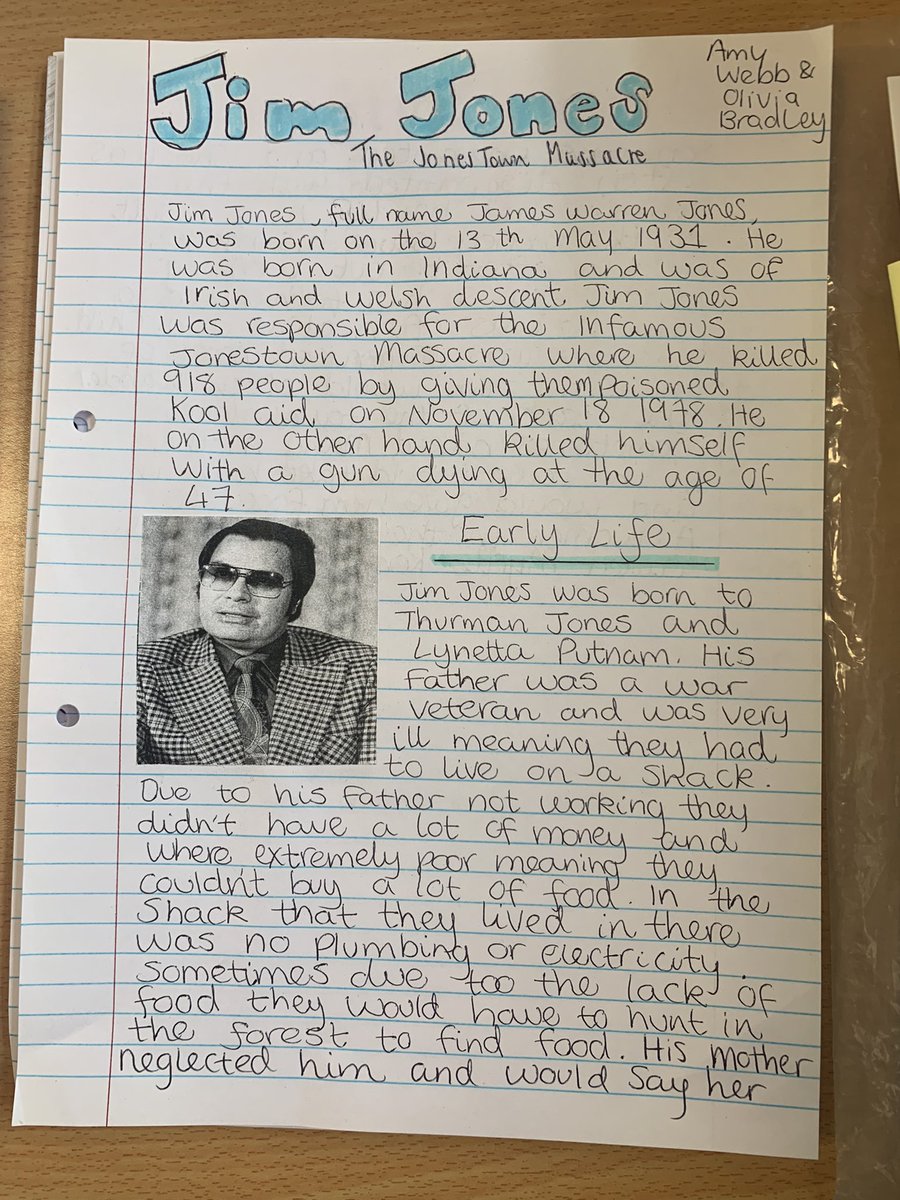 Jim Jones
Amy
Webb &
Olivia
Bradley
The Jones Town Massacre
Jim Jones, full name James Warren Jones,
was born on the 13th May 1931. He
was born in Indiana and was of
Irish and welsh descent. Jim Jones
was responsible for the infamous
Jonestown Massacre where he killed
918 people by giving them poisoned
Kool aid on November 18 1978. He
on the other hand killed himself
with a gun dying at the age of
47.
Early Life
Jim Jones was born to
Thurman Jones and
Lynetta Putnam. His
Father was a war
veteran and was very
ill meaning they had
to live on a shack.
Due to his father not working they
didn't have a lot of money and
where extremely poor meaning they
couldn't buy a lot of food. In the
Shack that they lived in there
was no plumbing or electricity.
Sometimes due too the lack of
food they would have to hunt in
the forest to find food. His mother
neglected him and would say her